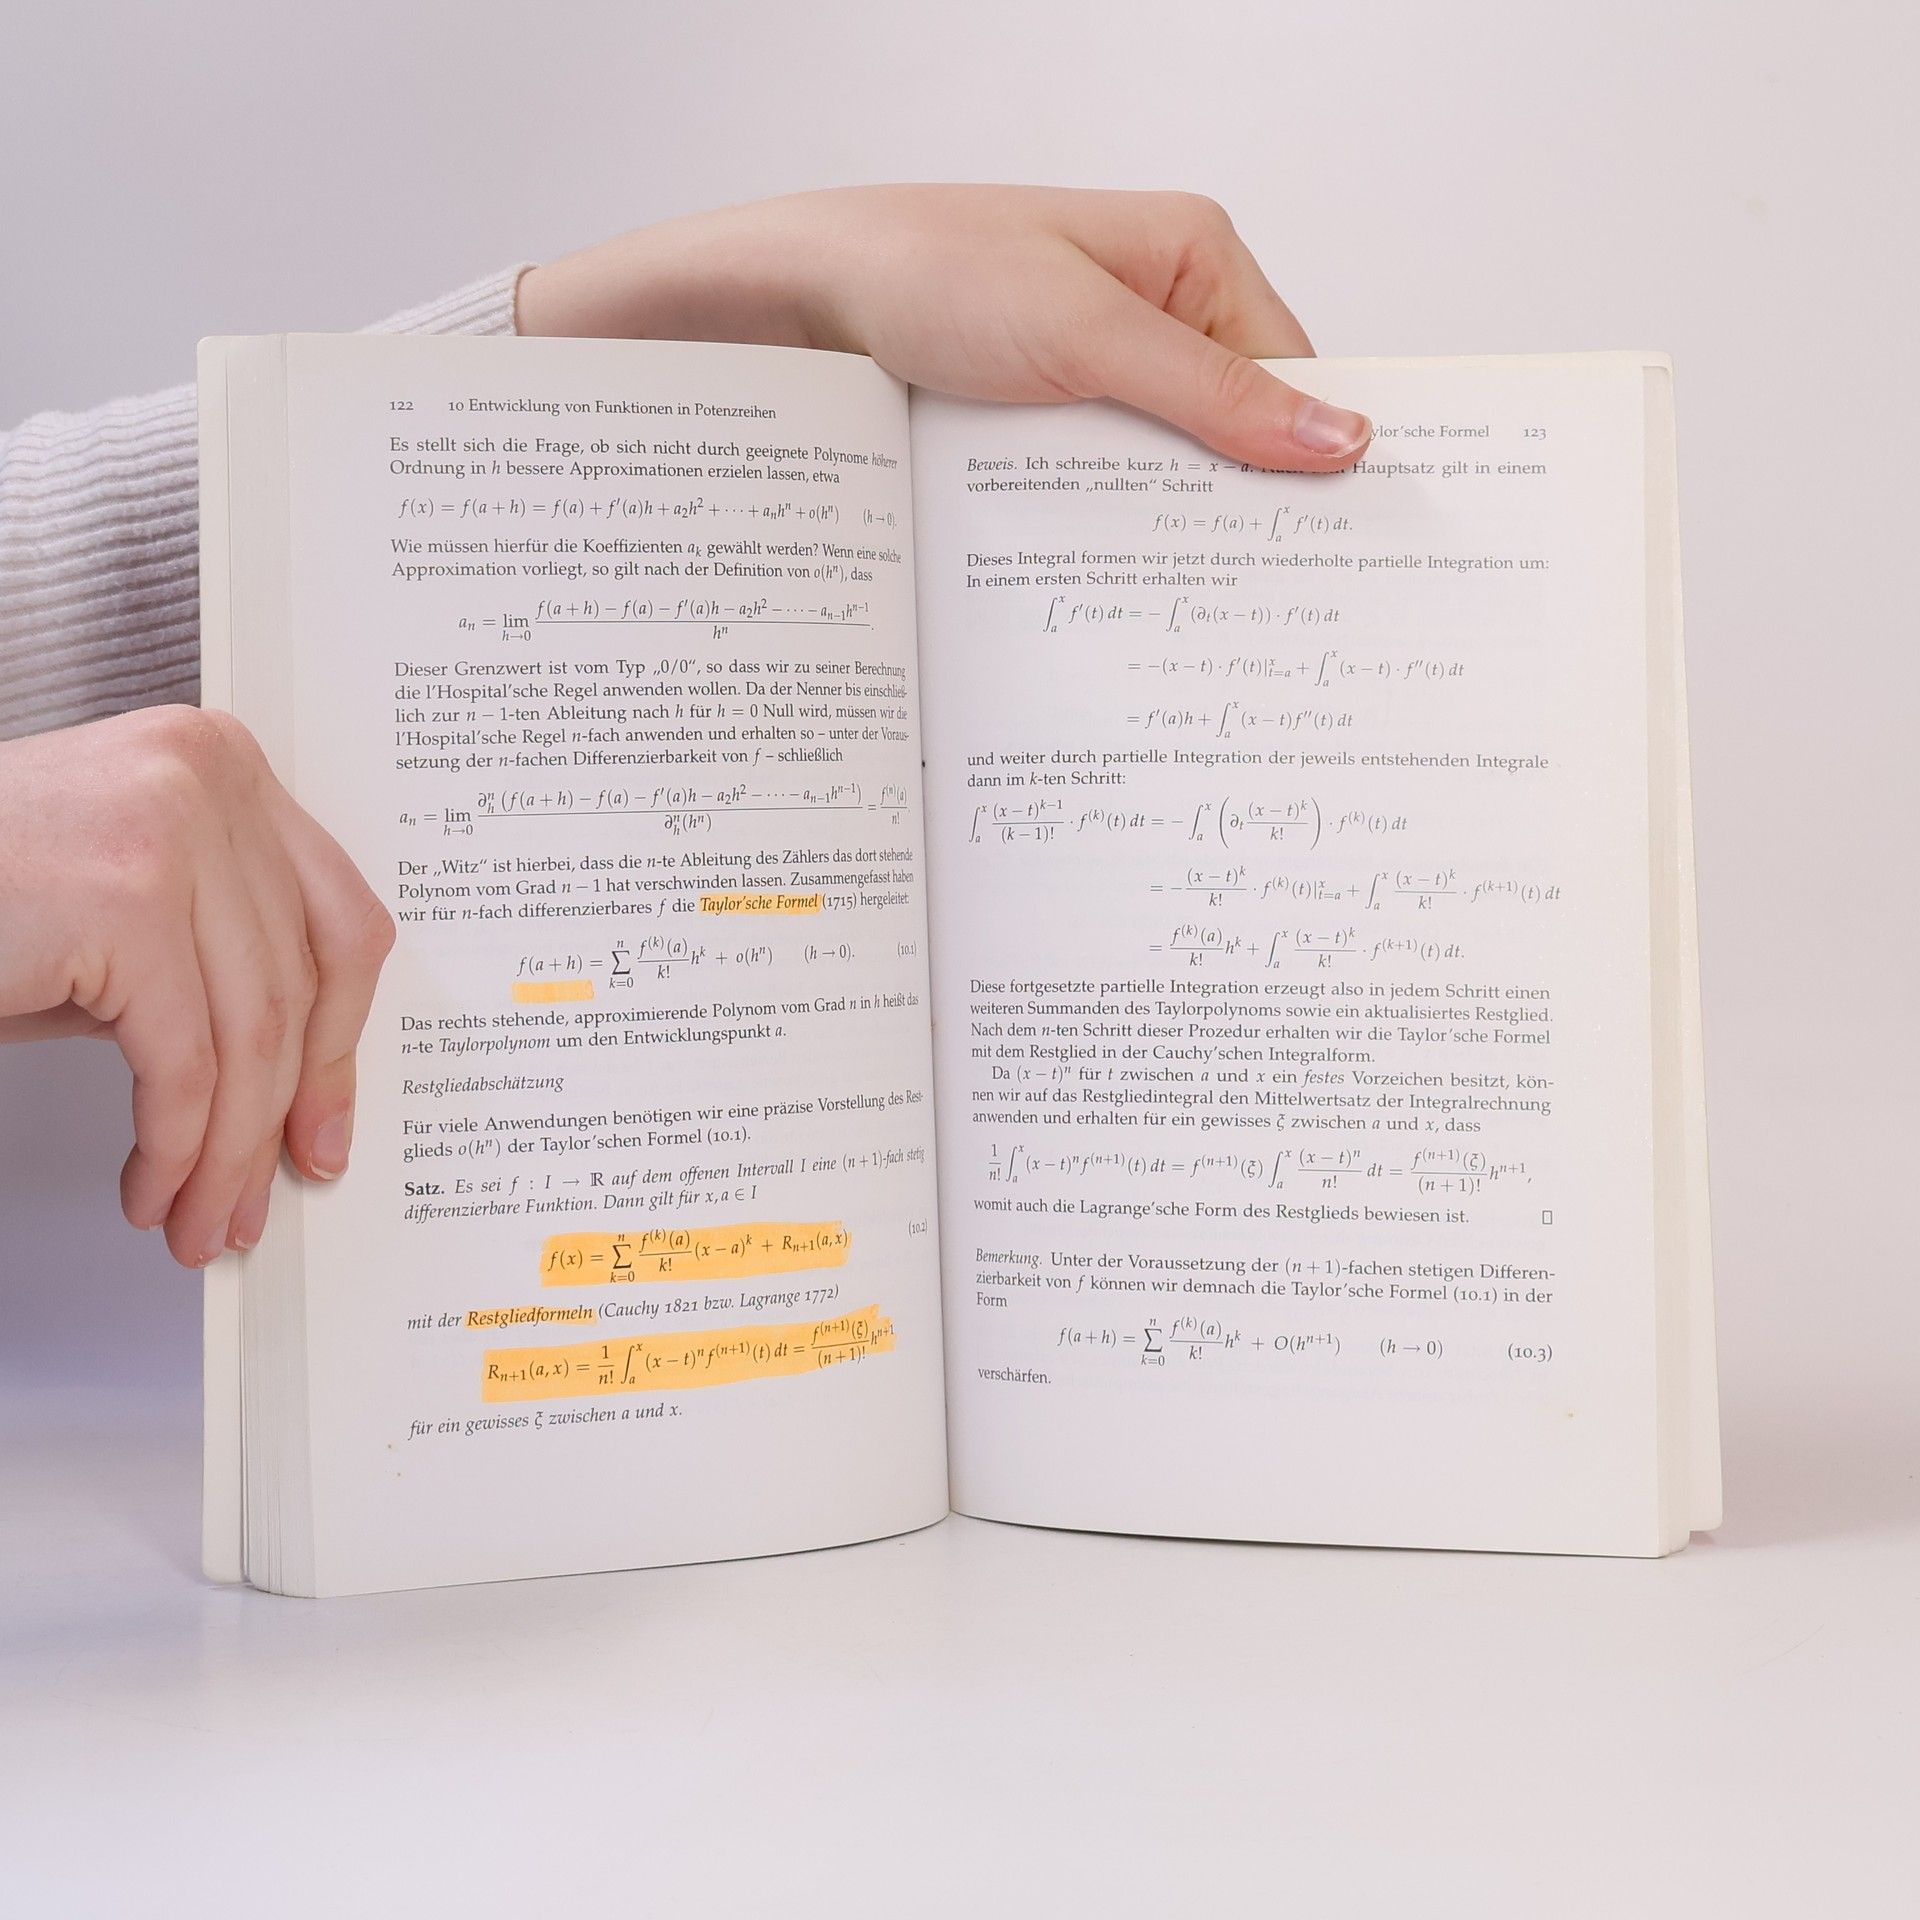 122 10 Entwicklung von Funktionen in Potenzreihen
Es stellt sich die Frage, ob sich nicht durch geeignete Polynome höherer
Ordnung in h bessere Approximationen erzielen lassen, etwa
f(x) = f(a + h) = f(a) + f′(a)h + a₂h² + ··· + aₙhⁿ + o(hⁿ) (h → 0).
Wie müssen hierfür die Koeffizienten aₖ gewählt werden? Wenn eine solche
Approximation vorliegt, so gilt nach der Definition von o(hⁿ), dass
aₙ = lim_{h→0} (f(a + h) − f(a) − f′(a)h − a₂h² − ··· − aₙ₋₁hⁿ⁻¹) / hⁿ.
Dieser Grenzwert ist vom Typ „0/0“, so dass wir zu seiner Berechnung
die l'Hospital'sche Regel anwenden wollen. Da der Nenner bis einschließ-
lich zur n − 1-ten Ableitung nach h für h = 0 Null wird, müssen wir die
l'Hospital'sche Regel n-fach anwenden und erhalten so – unter der Voraus-
setzung der n-fachen Differenzierbarkeit von f – schließlich
aₙ = lim_{h→0} ∂ₕⁿ (f(a + h) − f(a) − f′(a)h − a₂h² − ··· − aₙ₋₁hⁿ⁻¹) / ∂ₕⁿ(hⁿ) = f⁽ⁿ⁾(a) / n!.
Der „Witz“ ist hierbei, dass die n-te Ableitung des Zählers das dort stehende
Polynom vom Grad n − 1 hat verschwinden lassen. Zusammengefasst haben
wir für n-fach differenzierbares f die Taylor'sche Formel (1715) hergeleitet:
f(a + h) = ∑_{k=0}^{n} f⁽ᵏ⁾(a)/k! hᵏ + o(hⁿ) (h → 0). (10.1)
Das rechts stehende, approximierende Polynom vom Grad n in h heißt das
n-te Taylorpolynom um den Entwicklungspunkt a.
Restgliedabschätzung
Für viele Anwendungen benötigen wir eine präzise Vorstellung des Rest-
glieds o(hⁿ) der Taylor'schen Formel (10.1).
Satz. Es sei f : I → ℝ auf dem offenen Intervall I eine (n + 1)-fach stetig
differenzierbare Funktion. Dann gilt für x, a ∈ I
f(x) = ∑_{k=0}^{n} f⁽ᵏ⁾(a)/k! (x − a)ᵏ + Rₙ₊₁(a, x) (10.2)
mit der Restgliedformeln (Cauchy 1821 bzw. Lagrange 1772)
Rₙ₊₁(a, x) = 1/n! ∫ₐˣ (x − t)ⁿ f⁽ⁿ⁺¹⁾(t) dt = f⁽ⁿ⁺¹⁾(ξ)/(n + 1)! hⁿ⁺¹
für ein gewisses ξ zwischen a und x.
ylor'sche Formel 123
Beweis. Ich schreibe kurz h = x − a. Hauptsatz gilt in einem
vorbereitenden „nullten“ Schritt
f(x) = f(a) + ∫ₐˣ f′(t) dt.
Dieses Integral formen wir jetzt durch wiederholte partielle Integration um:
In einem ersten Schritt erhalten wir
∫ₐˣ f′(t) dt = − ∫ₐˣ (∂ₜ(x − t)) · f′(t) dt
= −(x − t) · f′(t)|ˣₜ₌ₐ + ∫ₐˣ (x − t) · f″(t) dt
= f′(a)h + ∫ₐˣ (x − t) f″(t) dt
und weiter durch partielle Integration der jeweils entstehenden Integrale
dann im k-ten Schritt:
∫ₐˣ (x − t)ᵏ⁻¹/(k − 1)! · f⁽ᵏ⁾(t) dt = − ∫ₐˣ (∂ₜ (x − t)ᵏ/k!) · f⁽ᵏ⁾(t) dt
= − (x − t)ᵏ/k! · f⁽ᵏ⁾(t)|ˣₜ₌ₐ + ∫ₐˣ (x − t)ᵏ/k! · f⁽ᵏ⁺¹⁾(t) dt
= f⁽ᵏ⁾(a)/k! hᵏ + ∫ₐˣ (x − t)ᵏ/k! · f⁽ᵏ⁺¹⁾(t) dt.
Diese fortgesetzte partielle Integration erzeugt also in jedem Schritt einen
weiteren Summanden des Taylorpolynoms sowie ein aktualisiertes Restglied.
Nach dem n-ten Schritt dieser Prozedur erhalten wir die Taylor'sche Formel
mit dem Restglied in der Cauchy'schen Integralform.
Da (x − t)ⁿ für t zwischen a und x ein festes Vorzeichen besitzt, kön-
nen wir auf das Restgliedintegral den Mittelwertsatz der Integralrechnung
anwenden und erhalten für ein gewisses ξ zwischen a und x, dass
1/n! ∫ₐˣ (x − t)ⁿ f⁽ⁿ⁺¹⁾(t) dt = f⁽ⁿ⁺¹⁾(ξ) ∫ₐˣ (x − t)ⁿ/n! dt = f⁽ⁿ⁺¹⁾(ξ)/(n + 1)! hⁿ⁺¹,
womit auch die Lagrange'sche Form des Restglieds bewiesen ist. □
Bemerkung. Unter der Voraussetzung der (n + 1)-fachen stetigen Differen-
zierbarkeit von f können wir demnach die Taylor'sche Formel (10.1) in der
Form
f(a + h) = ∑_{k=0}^{n} f⁽ᵏ⁾(a)/k! hᵏ + O(hⁿ⁺¹) (h → 0) (10.3)
verschärfen.